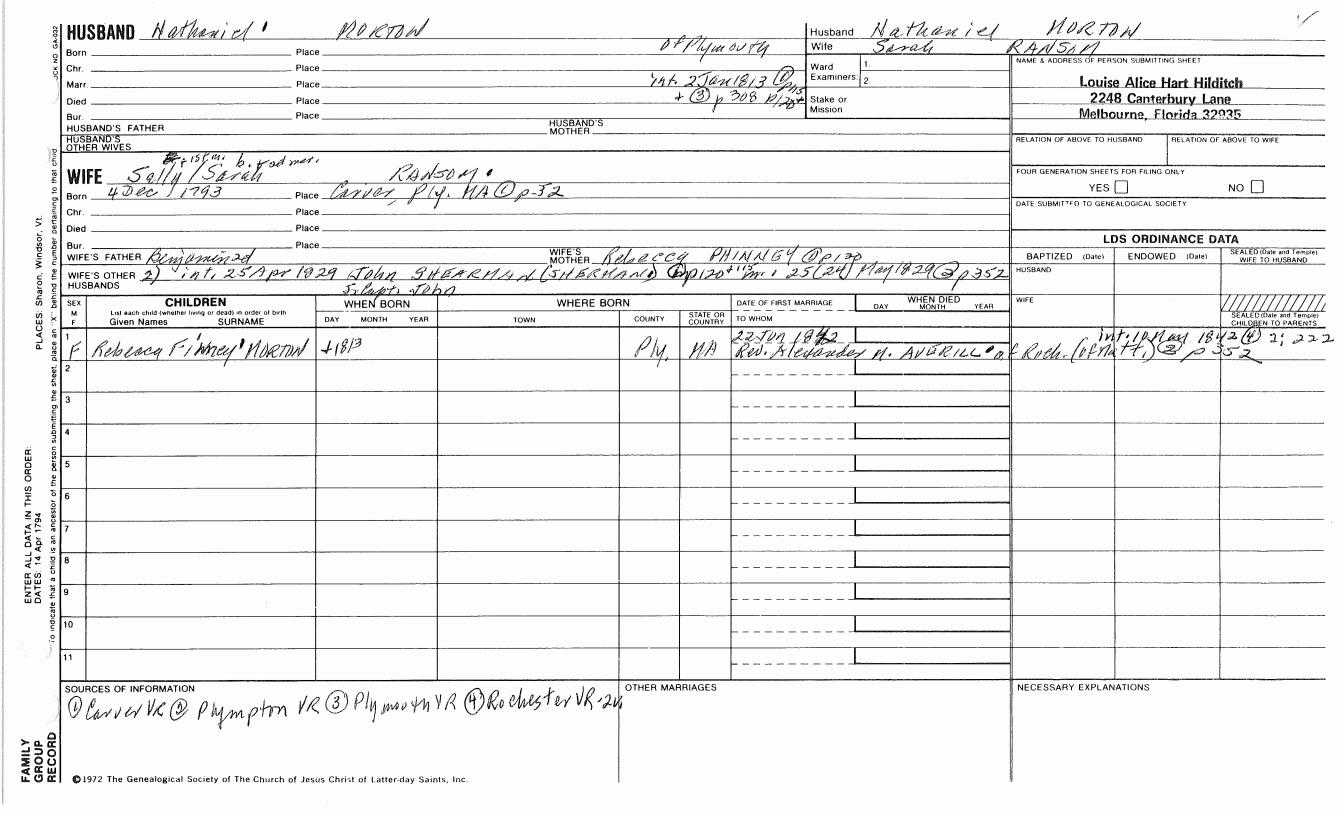 HUSBAND Nathaniel MORTON
Husband Nathaniel MORTON
Wife Sarah RANSOM
Born Place of Plymouth
Chr. Place
Marr. Place int. 2 Jan 1813 ① p115
Died Place + ③ p 308 p120+
Bur. Place
Ward Examiners 1.
2.
Stake or Mission
NAME & ADDRESS OF PERSON SUBMITTING SHEET
Louise Alice Hart Hilditch
2248 Canterbury Lane
Melbourne, Florida 32935
HUSBAND'S FATHER HUSBAND'S MOTHER
HUSBAND'S OTHER WIVES
RELATION OF ABOVE TO HUSBAND RELATION OF ABOVE TO WIFE
+ 1st m. b. + ad mar.
WIFE Sally/Sarah RANSOM
Born 4 Dec 1793 Place Carver, Ply. MA ① p-52
Chr. Place
Died Place
Bur. Place
FOUR GENERATION SHEETS FOR FILING ONLY
YES NO
DATE SUBMITTED TO GENEALOGICAL SOCIETY
WIFE'S FATHER Benjamin WIFE'S MOTHER Rebecca PHINNEY ① p120
WIFE'S OTHER HUSBANDS 2) int. 25 Apr 1829 John SHEARMAN (SHERMAN) p120 + 115 m. 25 (24) May 1829 p352
Capt. John
LDS ORDINANCE DATA
BAPTIZED (Date) ENDOWED (Date) SEALED (Date and Temple) WIFE TO HUSBAND
HUSBAND
WIFE
SEALED (Date and Temple) CHILDREN TO PARENTS
SEX M F
CHILDREN
List each child (whether living or dead) in order of birth
Given Names SURNAME
WHEN BORN
DAY MONTH YEAR
WHERE BORN
TOWN COUNTY STATE OR COUNTRY
DATE OF FIRST MARRIAGE
TO WHOM
WHEN DIED
DAY MONTH YEAR
1 22 Jun 1842 int. 10 May 1842 ④ 2; 222
F Rebecca Finney MORTON +1813 Ply. MA Rev. Alexander M. AVERILL of Roch. (of Matt.) p 352
2
3
4
5
6
7
8
9
10
11
SOURCES OF INFORMATION
① Carver VR ② Plympton VR ③ Plymouth VR ④ Rochester VR-2v.
OTHER MARRIAGES
NECESSARY EXPLANATIONS
©1972 The Genealogical Society of The Church of Jesus Christ of Latter-day Saints, Inc.
FAMILY GROUP RECORD
ENTER ALL DATA IN THIS ORDER:
DATES: 14 Apr 1794
PLACES: Sharon, Windsor, Vt.
To indicate that a child is an ancestor of the person submitting the sheet, place an "X" behind the number pertaining to that child